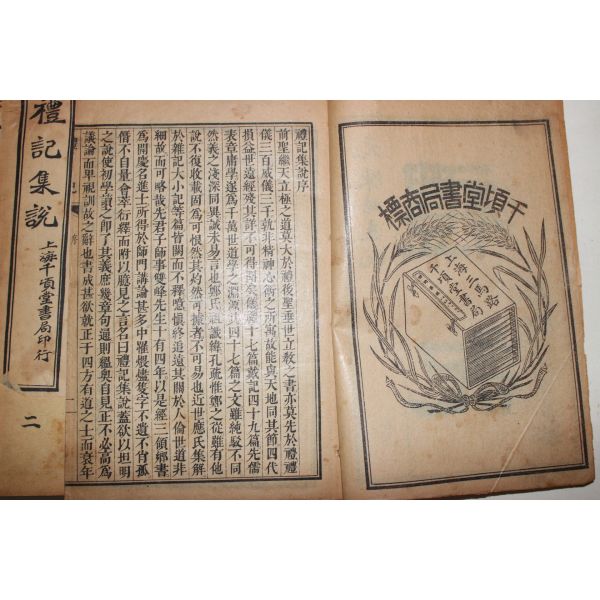 千頃堂書局商標
上海三馬路
千頃堂書局
禮記集說序
前聖繼天立極之道莫大於禮後聖垂世立敎之書亦莫先於禮禮
儀三百威儀三千孰非精神心術之所寓故能與天地同其節四代
損益世遠經殘其詳不可得聞矣儀禮十七篇戴記四十九篇先儒
表章庸學遂爲千萬世道學之淵源其四十七篇之文雖純駁不同
然義之淺深同異誠未易言也鄭氏祖讖緯孔疏惟鄭之從雖有他
說不復收載固爲可恨然其灼然可據者不可易也近世應氏集解
於雜記大小記等篇皆闕而不釋噫愼終追遠其關於人倫世道非
細故而可略哉先君子師事雙峰先生十有四年以是經三領鄉書
爲開慶名進士所得於師門講論甚多中罹煨燼隻字不遺不肖孤
僭不自量會萃衍繹而附以臆見之言名曰禮記集說蓋欲以坦明
之說使初學讀之即了其義庶幾章句通則蘊奧自見正不必高爲
議論而卑視訓故之辭也書成甚欲就正于四方有道之士而衰年
禮記集說
上海千頃堂書局印行
二